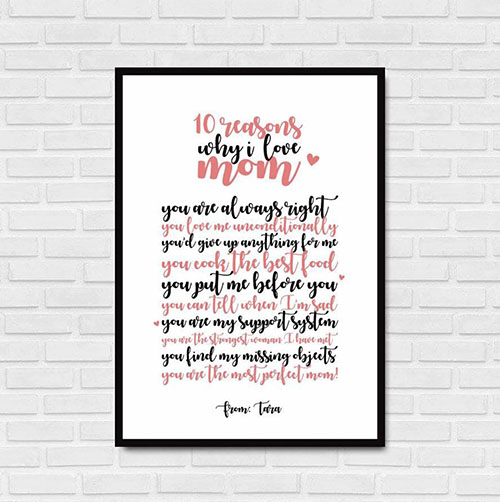 10 reasons
why i love
mom
you are always right
you love me unconditionally
you'd give up anything for me
you cook the best food
you put me before you
you can tell when I'm sad
you are my support system
you are the strongest woman I have met
you find my missing objects
you are the most perfect mom!
from: Tara